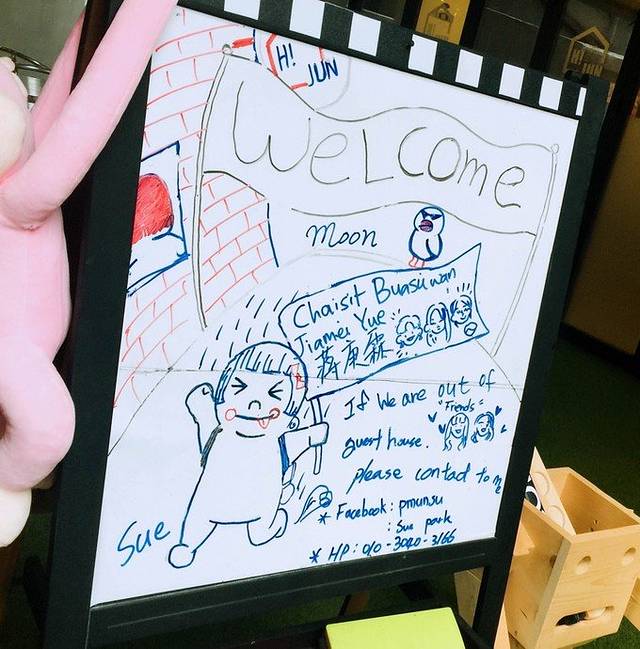 Hi
JUN
WeLCome
Moon
Chaisit Buasuwan
Jiamei Yue
蔣康霖
If we are out of
"Friends"
guest house.
please contact to me
* Facebook: pmunsu
: Sue park
* HP: 010-3040-3166
Sue
Hi
JUN